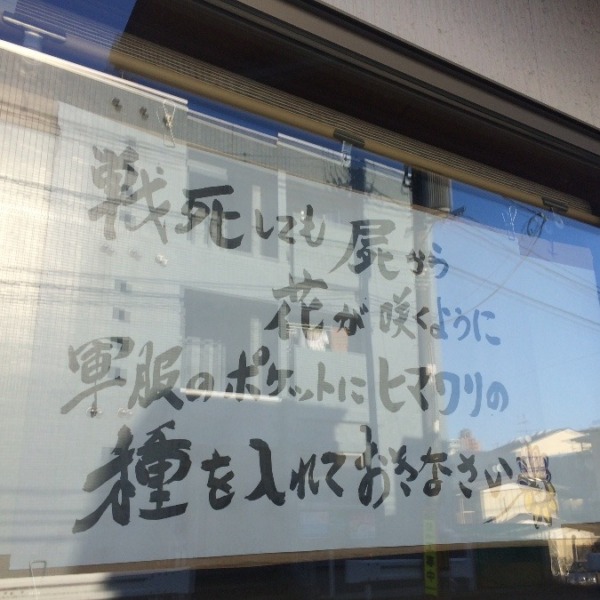 戦死しても屍から
花が咲くように
軍服のポケットにヒマワリの
種を入れておきなさい